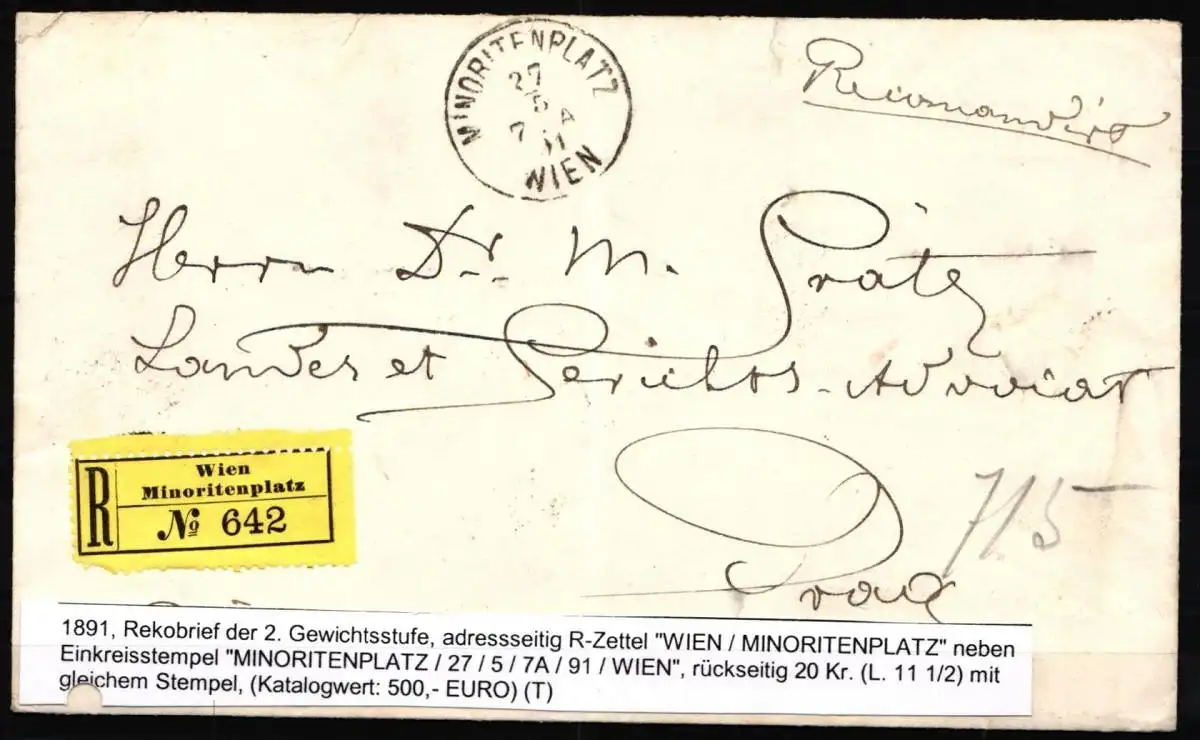 MINORITENPLATZ
27
5
7 A
91
WIEN
Recomandirt
Herrn Dr. M. Grätz
Landes et Gerichts-Advocat
Prag
715
R
Wien
Minoritenplatz
№ 642
1891, Rekobrief der 2. Gewichtsstufe, adressseitig R-Zettel "WIEN / MINORITENPLATZ" neben
Einkreisstempel "MINORITENPLATZ / 27 / 5 / 7A / 91 / WIEN", rückseitig 20 Kr. (L. 11 1/2) mit
gleichem Stempel, (Katalogwert: 500,- EURO) (T)